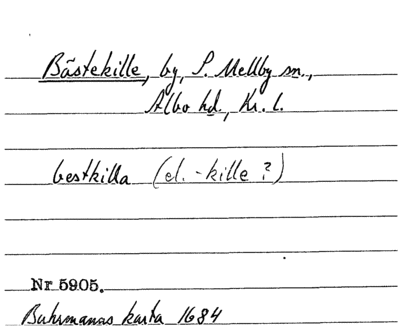 Bästekille, by, S. Mellby sn.,
Albo hd., Kr. l.
bestkilla (el. -kille ?)
Nr 5905.
Buhrmanns karta 1684